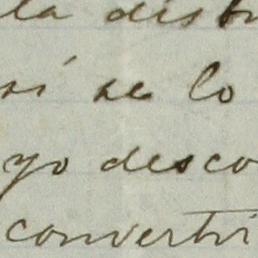 la distr
sí se lo
yo desco
convertir